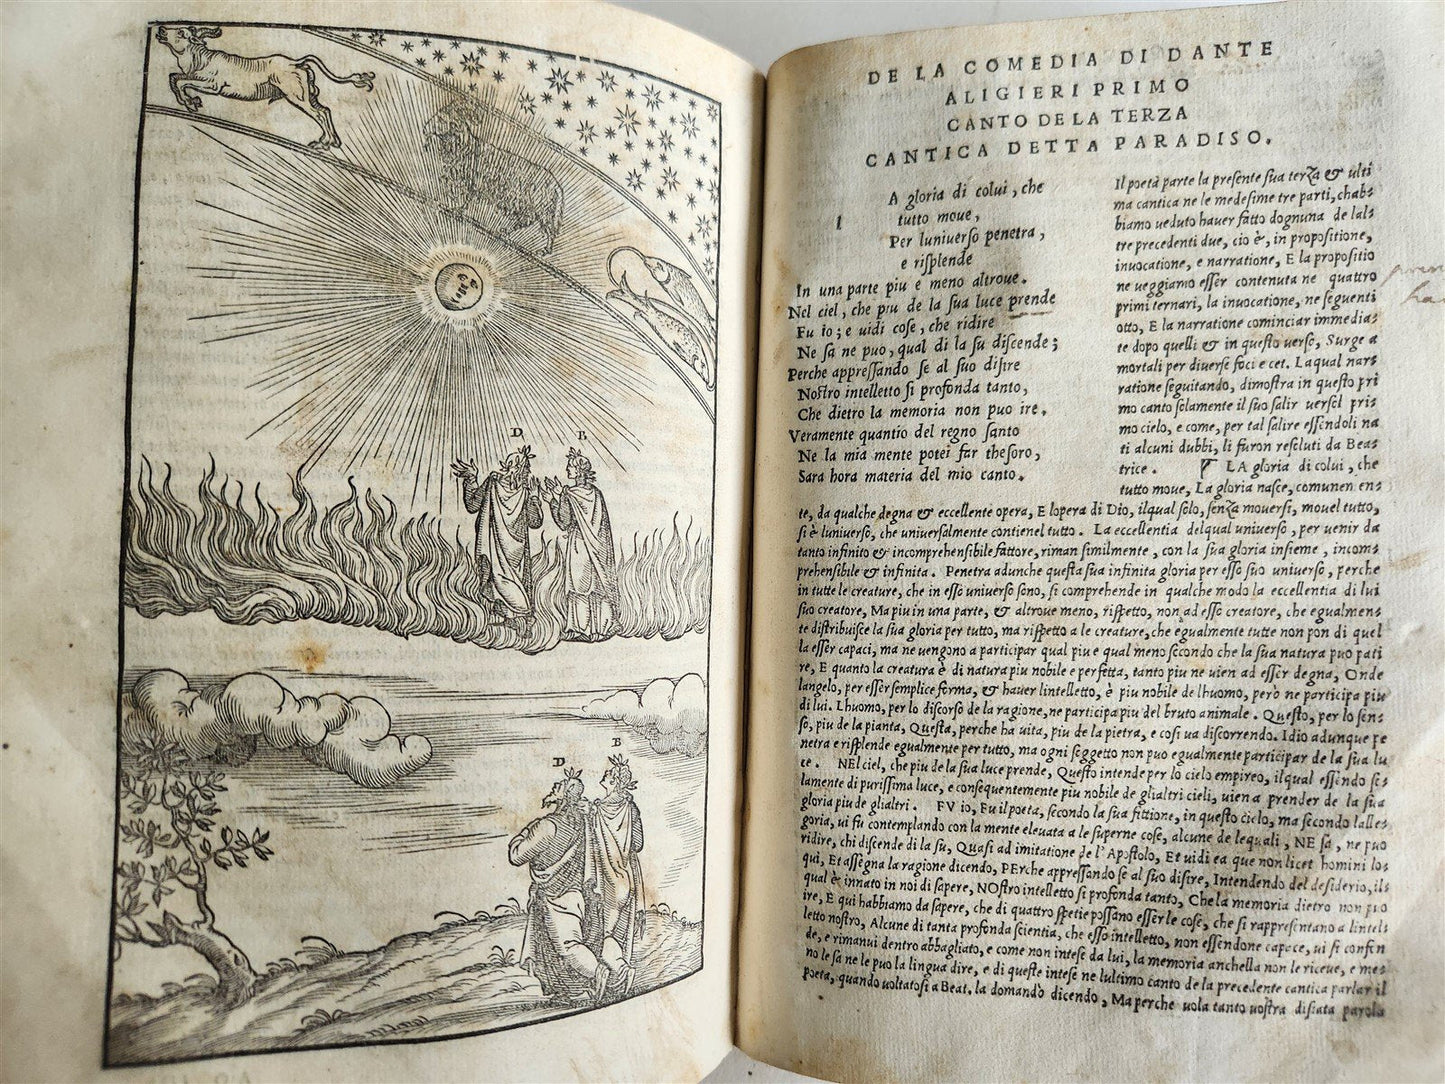 D.
B.
D
B
DE LA COMEDIA DI DANTE
ALIGIERI PRIMO
CANTO DE LA TERZA
CANTICA DETTA PARADISO.
l
A gloria di colui, che
tutto moue,
Per luniuerſo penetra,
e riſplende
In una parte piu e meno altroue.
Nel ciel, che piu de la ſua luce prende
Fu io; e uidi coſe, che ridire
Ne ſa ne puo, qual di la ſu diſcende;
Perche appreſſando ſe al ſuo diſire
Noſtro intelletto ſi profonda tanto,
Che dietro la memoria non puo ire.
Veramente quantio del regno ſanto
Ne la mia mente potei far theſoro,
Sara hora materia del mio canto.
Il poeta parte la preſente ſua terza & ulti
ma cantica ne le medeſime tre parti, chab-
biamo ueduto hauer fatto dognuna de lal-
tre precedenti due, cio è, in propoſitione,
inuocatione, e narratione, E la propoſitio
ne ueggiamo eſſer contenuta ne quattro
primi ternari, la inuocatione, ne ſeguenti
otto, E la narratione cominciar immedia-
te dopo quelli & in queſto uerſo, Surge a
mortali per diuerſe foci e cet. Laqual nar-
ratione ſeguitando, dimoſtra in queſto pri
mo canto ſolamente il ſuo ſalir uerſel pri-
mo cielo, e come, per tal ſalire eſſendoli na
ti alcuni dubbi, li furon reſoluti da Bea-
trice. LA gloria di colui, che
tutto moue, La gloria naſce, comunen en-
te, da qualche degna & eccellente opera, E lopera di Dio, ilqual ſolo, ſenza mouerſi, mouel tutto,
ſi è luniuerſo, che uniuerſalmente contienel tutto. La eccellentia delqual uniuerſo, per uenir da
tanto infinito & incomprehenſibile fattore, riman ſimilmente, con la ſua gloria inſieme, incom-
prehenſibile & infinita. Penetra adunche queſta ſua infinita gloria per eſſo ſuo uniuerſo, perche
in tutte le creature, che in eſſo uniuerſo ſono, ſi comprehende in qualche modo la eccellentia di lui
ſuo creatore, Ma piu in una parte, & altroue meno, riſpetto, non ad eſſo creatore, che egualmen-
te diſtribuiſce la ſua gloria per tutto, ma riſpetto a le creature, che egualmente tutte non pon di quel
la eſſer capaci, ma ne uengono a participar qual piu e qual meno ſecondo che la ſua natura puo pati
re, E quanto la creatura è di natura piu nobile e perfetta, tanto piu ne uien ad eſſer degna, Onde
langelo, per eſſer ſemplice forma, & hauer lintelletto, è piu nobile de lhuomo, però ne participa piu
di lui. Lhuomo, per lo diſcorſo de la ragione, ne participa piu del bruto animale. Queſto, per lo ſen-
ſo, piu de la pianta, Queſta, perche ha uita, piu de la pietra, e coſi ua diſcorrendo. Idio adunque pe
netra e riſplende egualmente per tutto, ma ogni ſeggetto non puo egualmente participar de la ſua lu
ce. NEl ciel, che piu de la ſua luce prende, Queſto intende per lo cielo empireo, ilqual eſſendo ſo-
lamente di puriſſima luce, e conſequentemente piu nobile de glialtri cieli, uien a prender de la ſua
gloria piu de glialtri. FV io, Fu il poeta, ſecondo la ſua fittione, in queſto cielo, ma ſecondo lalle-
goria, ui fu contemplando con la mente eleuata a le ſuperne coſe, alcune de lequali, NE ſa, ne puo
ridire, chi diſcende di la ſu, Quaſi ad imitatione de l'Apoſtolo, Et uidi ea que non licet homini lo-
qui, Et aſſegna la ragione dicendo, PErche appreſſando ſe al ſuo diſire, Intendendo del deſiderio, il-
qual è innato in noi di ſapere, NOſtro intelletto ſi profonda tanto, Che la memoria dietro non puo
ire, E qui habbiamo da ſapere, che di quattro ſpetie poſſano eſſer le coſe, che ſi rappreſentano a lintel-
letto noſtro, Alcune di tanta profonda ſcientia, che eſſo intelletto, non eſſendone capace, ui ſi confon
de, e rimanui dentro abbagliato, e come non inteſe da lui, la memoria anchella non le riceue, e me-
no le ſa ne le puo la lingua dire, e di queſte inteſe ne lultimo canto de la precedente cantica parlar il
poeta, quando uoltatoſi a Beat. la domandò dicendo, Ma perche uola tanto uoſtra diſiata parola